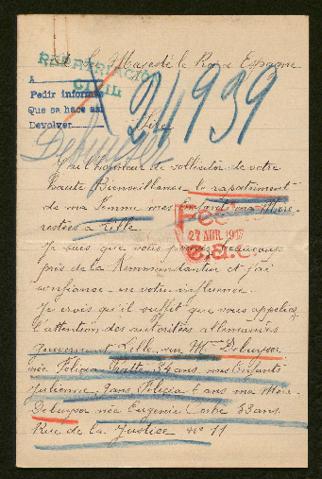 A Sa Majesté le Roi d'Espagne
REPATRIACION
CIVIL
A
Pedir informes
Que se hace así
Devolver
24939
Sire
J'ai l'honneur de solliciter de votre
haute Bienveillance, le rapatriement
de ma femme mes Enfants ma Mère
restées à Lille.
Fecha
27 ABR. 1917
e.a.c.
Je sais que vous pouvez beaucoup
près de la Kommandantur et j'ai
confiance en votre influence.
Je crois qu'il suffit que vous appeliez
l'attention des autorités allemandes
gouvernant Lille, sur Mme Debuyser
née Félicia 34 ans, mes Enfants
Julienne, 9 ans, Félicia 6 ans ma Mère
Debuyser née Eugénie 53 ans
Rue de la Justice no 11